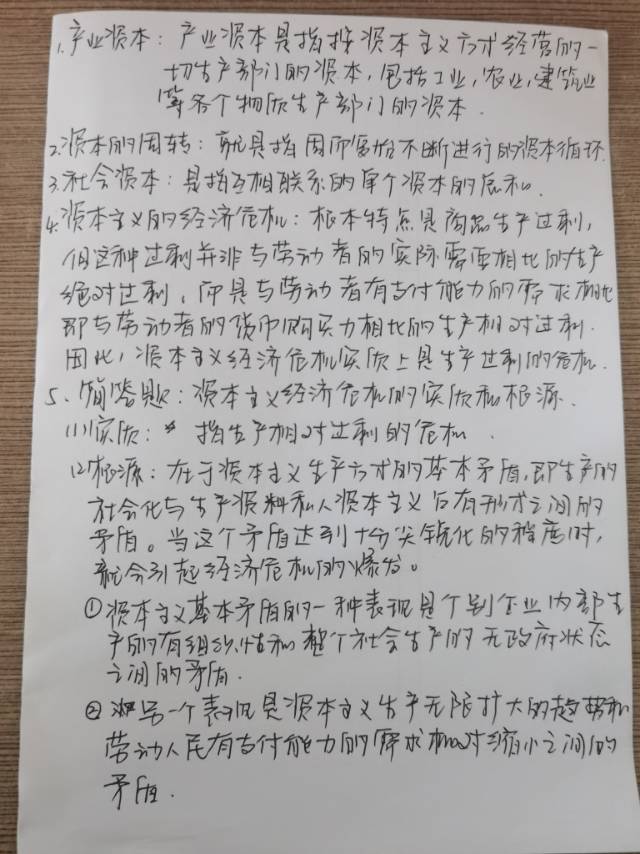 1.产业资本：产业资本是指按资本主义方式经营的一
切生产部门的资本，包括工业，农业，建筑业
等各个物质生产部门的资本.
2.资本的周转：就是指周而复始不断进行的资本循环.
3.社会资本：是指互相联系的单个资本的总和.
4.资本主义的经济危机：根本特点是商品生产过剩，
但这种过剩并非与劳动者的实际需要相比的生产
绝对过剩，而是与劳动者有支付能力的需求相比
即与劳动者的货币购买力相比的生产相对过剩.
因此，资本主义经济危机实质上是生产过剩的危机.
5、简答题：资本主义经济危机的实质和根源.
(1)实质： 指生产相对过剩的危机.
(2)根源：在于资本主义生产方式的基本矛盾，即生产的
社会化与生产资料私人资本主义占有形式之间的
矛盾。当这个矛盾达到十分尖锐化的程度时，
就会引起经济危机的爆发。
①资本主义基本矛盾的一种表现是个别企业内部生
产的有组织性和整个社会生产的无政府状态
之间的矛盾.
②另一个表现是资本主义生产无限扩大的趋势和
劳动人民有支付能力的需求相对缩小之间的
矛盾.